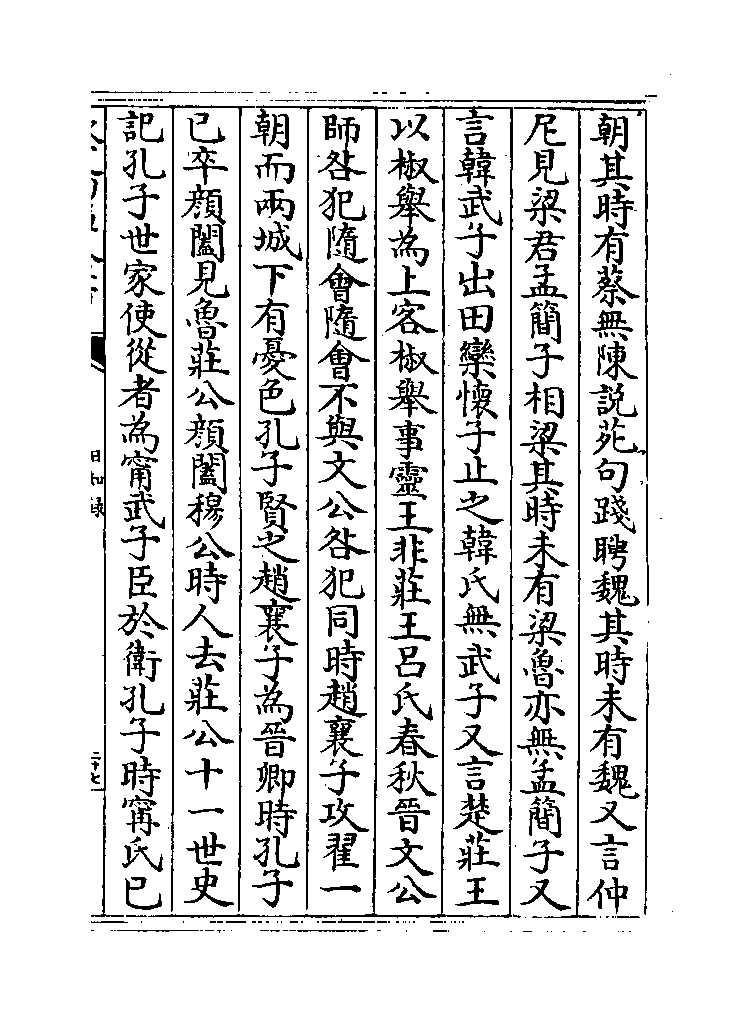 朝其時有蔡無陳說苑句踐聘魏其時未有魏又言仲
尼見梁君孟簡子相梁其時未有梁魯亦無孟簡子又
言韓武子出田欒懷子止之韓氏無武子又言楚莊王
以椒舉為上客椒舉事靈王非莊王呂氏春秋晉文公
師咎犯隨會隨會不與文公咎犯同時趙襄子攻翟一
朝而兩城下有憂色孔子賢之趙襄子為晉卿時孔子
已卒顔闔見魯莊公顔闔穆公時人去莊公十一世史
記孔子世家使從者為甯武子臣於衛孔子時甯氏已
日知錄